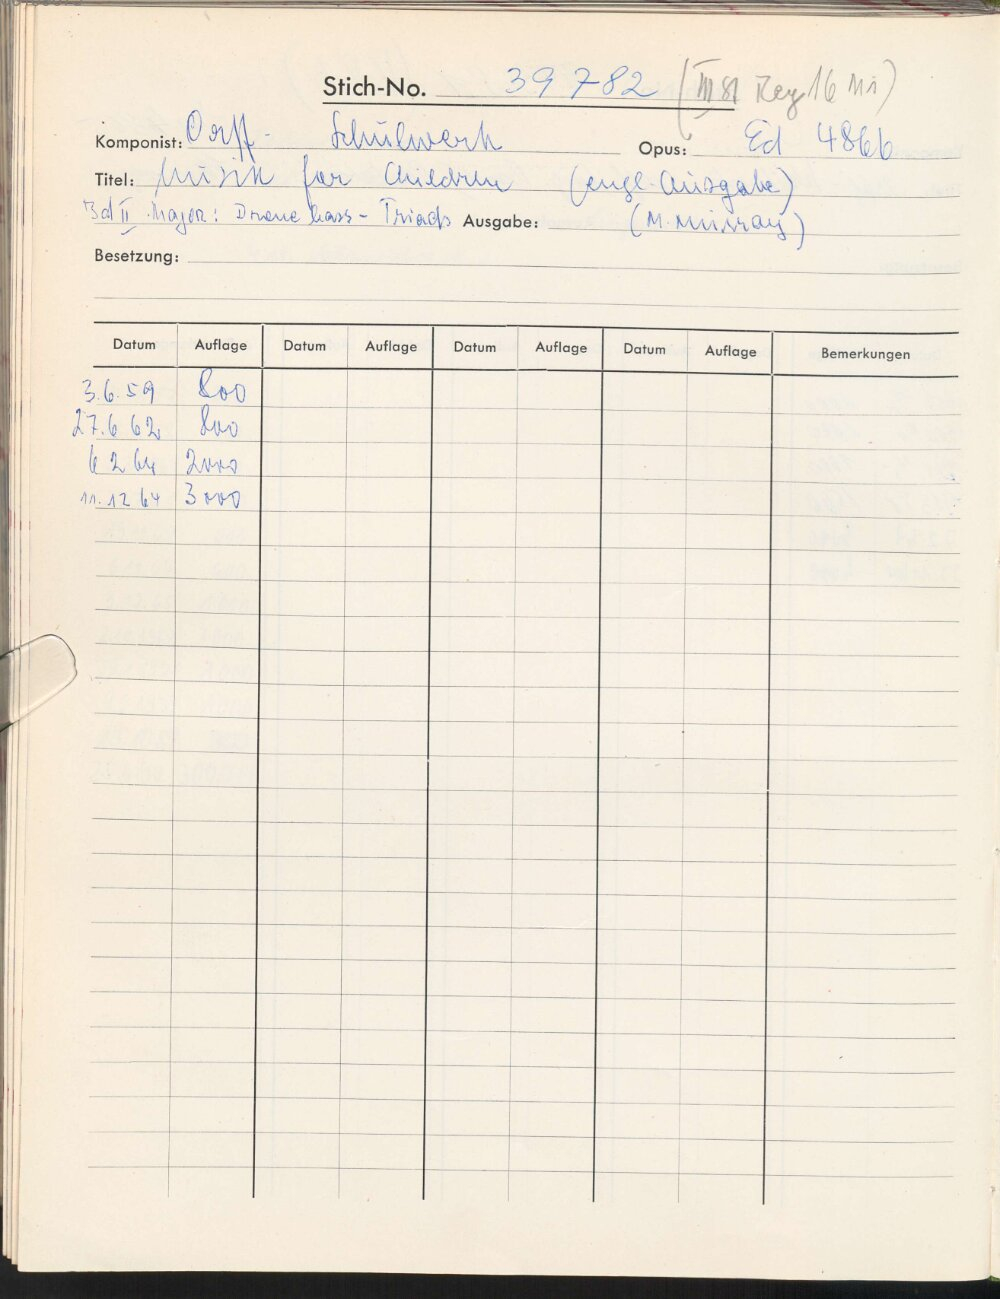 Stich-No. 39782 (III 81
Komponist: Orff - Schulwerk Opus: Ed 4866
Titel: Musik for Children (engl. Ausgabe)
Bd II Major: Drone bass - Triads Ausgabe: (M. Murray)
Besetzung:
Datum Auflage Datum Auflage Datum Auflage Datum Auflage Bemerkungen
3.6.59 800
27.6 62 800
6 2 64 2000
11.12 64 3000